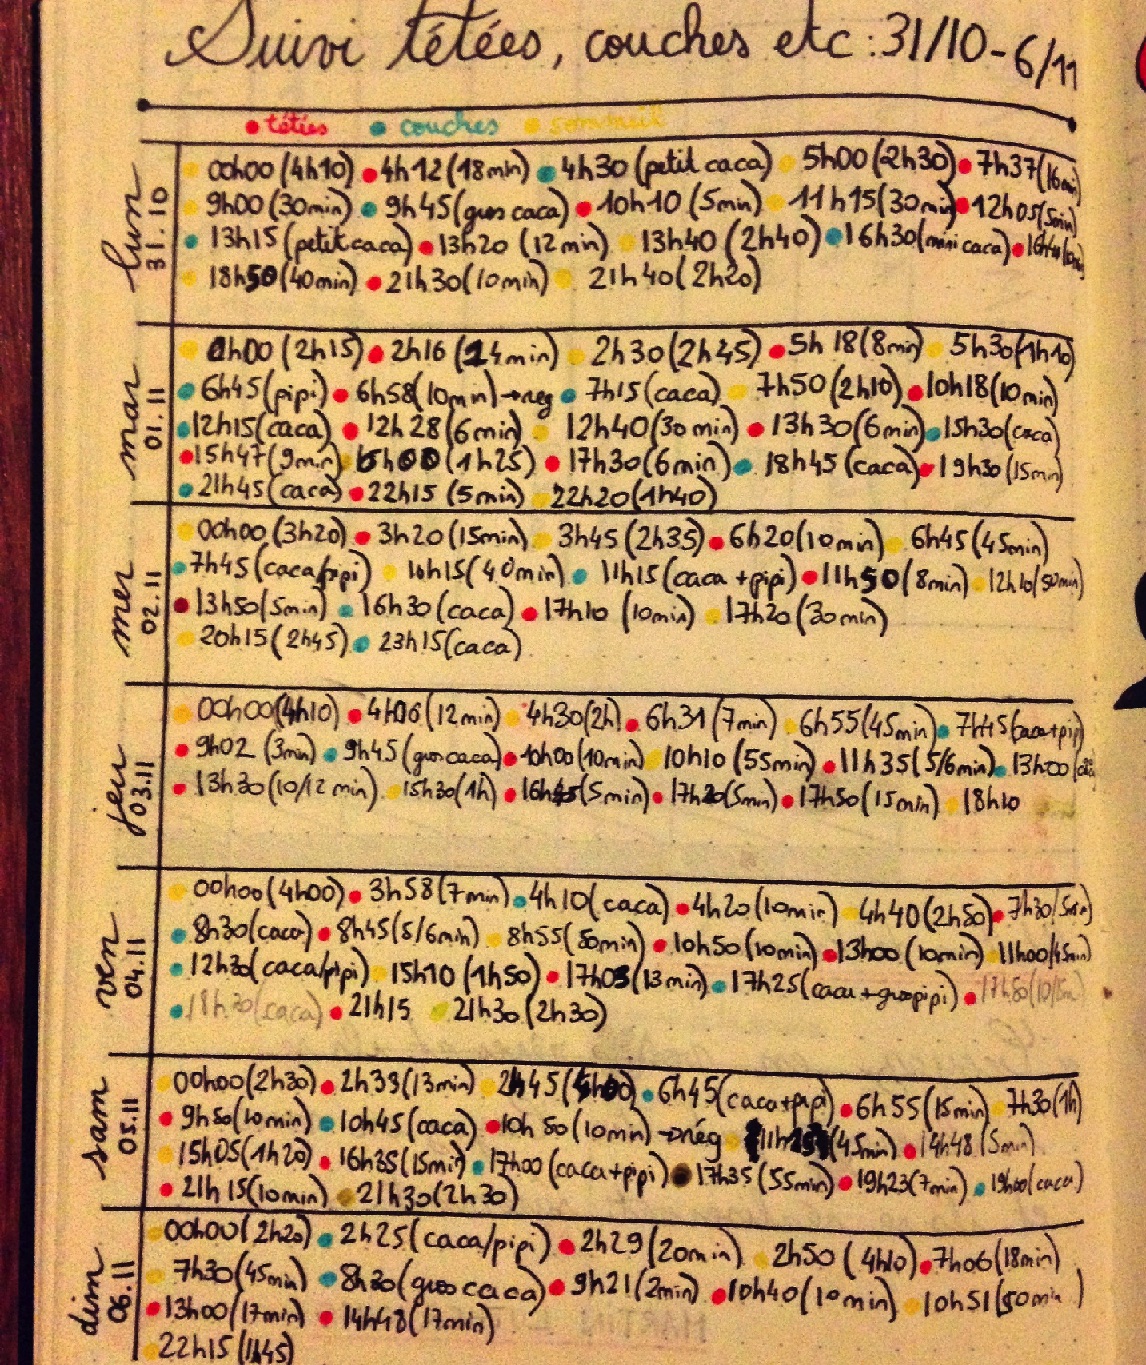 Suivi tétées, couches etc : 31/10 - 6/11
• tétées • couches • sommeil
lun 31.10
• 00h00 (4h10) • 4h12 (18min) • 4h30 (petit caca) • 5h00 (2h30) • 7h37 (16min)
• 9h00 (30min) • 9h45 (gros caca) • 10h10 (5min) • 11h15 (30min) • 12h05 (5min)
• 13h15 (petit caca) • 13h20 (12min) • 13h40 (2h40) • 16h30 (mini caca) •
• 18h50 (40min) • 21h30 (10min) • 21h40 (2h20)
mar 01.11
• 0h00 (2h15) • 2h16 (14min) • 2h30 (2h45) • 5h18 (8min) • 5h30 (1h10)
• 6h45 (pipi) • 6h58 (10min) → neg • 7h15 (caca) • 7h50 (2h10) • 10h18 (10min)
• 12h15 (caca) • 12h28 (6min) • 12h40 (30min) • 13h30 (6min) • 15h30 (caca)
• 15h47 (9min) • 16h00 (1h25) • 17h30 (6min) • 18h45 (caca) • 19h30 (15min)
• 21h45 (caca) • 22h15 (5min) • 22h20 (1h40)
mer 02.11
• 00h00 (3h20) • 3h20 (15min) • 3h45 (2h35) • 6h20 (10min) • 6h45 (45min)
• 7h45 (caca/pipi) • 10h15 (40min) • 11h15 (caca + pipi) • 11h50 (8min) • 12h10 (50min)
• 13h50 (5min) • 16h30 (caca) • 17h10 (10min) • 17h20 (30min)
• 20h15 (2h45) • 23h15 (caca)
jeu 03.11
• 00h00 (4h10) • 4h06 (12min) • 4h30 (2h) • 6h31 (7min) • 6h55 (45min) • 7h45 (caca+pipi)
• 9h02 (3min) • 9h45 (gros caca) • 10h00 (10min) • 10h10 (55min) • 11h35 (5/6min) • 13h00
• 13h30 (10/12min) • 15h30 (1h) • 16h45 (5min) • 17h20 (5min) • 17h50 (15min) • 18h10
ven 04.11
• 00h00 (4h00) • 3h58 (7min) • 4h10 (caca) • 4h20 (10min) • 4h40 (2h50) • 7h30 (5min)
• 8h30 (caca) • 8h45 (5/6min) • 8h55 (50min) • 10h50 (10min) • 13h00 (10min) • 11h00 (45min)
• 12h30 (caca/pipi) • 15h10 (1h50) • 17h03 (13min) • 17h25 (caca + gros pipi) • 17h50
• 18h30 (caca) • 21h15 • 21h30 (2h30)
sam 05.11
• 00h00 (2h30) • 2h33 (13min) • 2h45 (4h00) • 6h45 (caca+pipi) • 6h55 (15min) • 7h30 (1h)
• 9h50 (10min) • 10h45 (caca) • 10h50 (10min) → nég • 11h25 (45min) • 14h48 (5min)
• 15h05 (1h20) • 16h35 (15min) • 17h00 (caca+pipi) • 17h35 (55min) • 19h23 (7min) • 19h00 (caca)
• 21h15 (10min) • 21h30 (2h30)
dim 06.11
• 00h00 (2h20) • 2h25 (caca/pipi) • 2h29 (20min) • 2h50 (4h10) • 7h06 (18min)
• 7h30 (45min) • 8h30 (gros caca) • 9h21 (2min) • 10h40 (10min) • 10h51 (50min)
• 13h00 (17min) • 14h48 (17min)
• 22h15 (1h45)